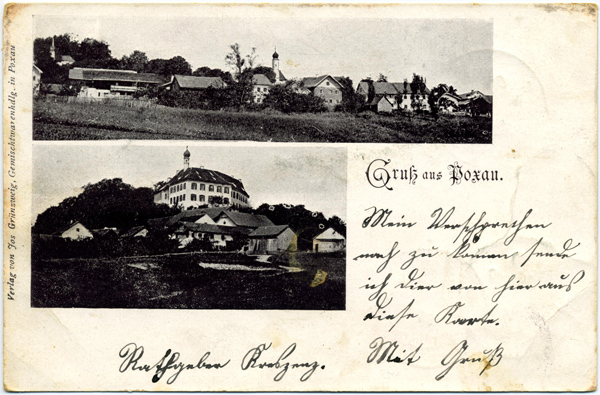 Verlag von Jos Grünzweig, Gemischtwarenhdlg. in Poxau
Gruß aus Poxau.
Mein Versprethen
nach zu komen sende
ich dier von hier aus
diese Karte.
Mit Gruß
Rathgeber Kreszenz.